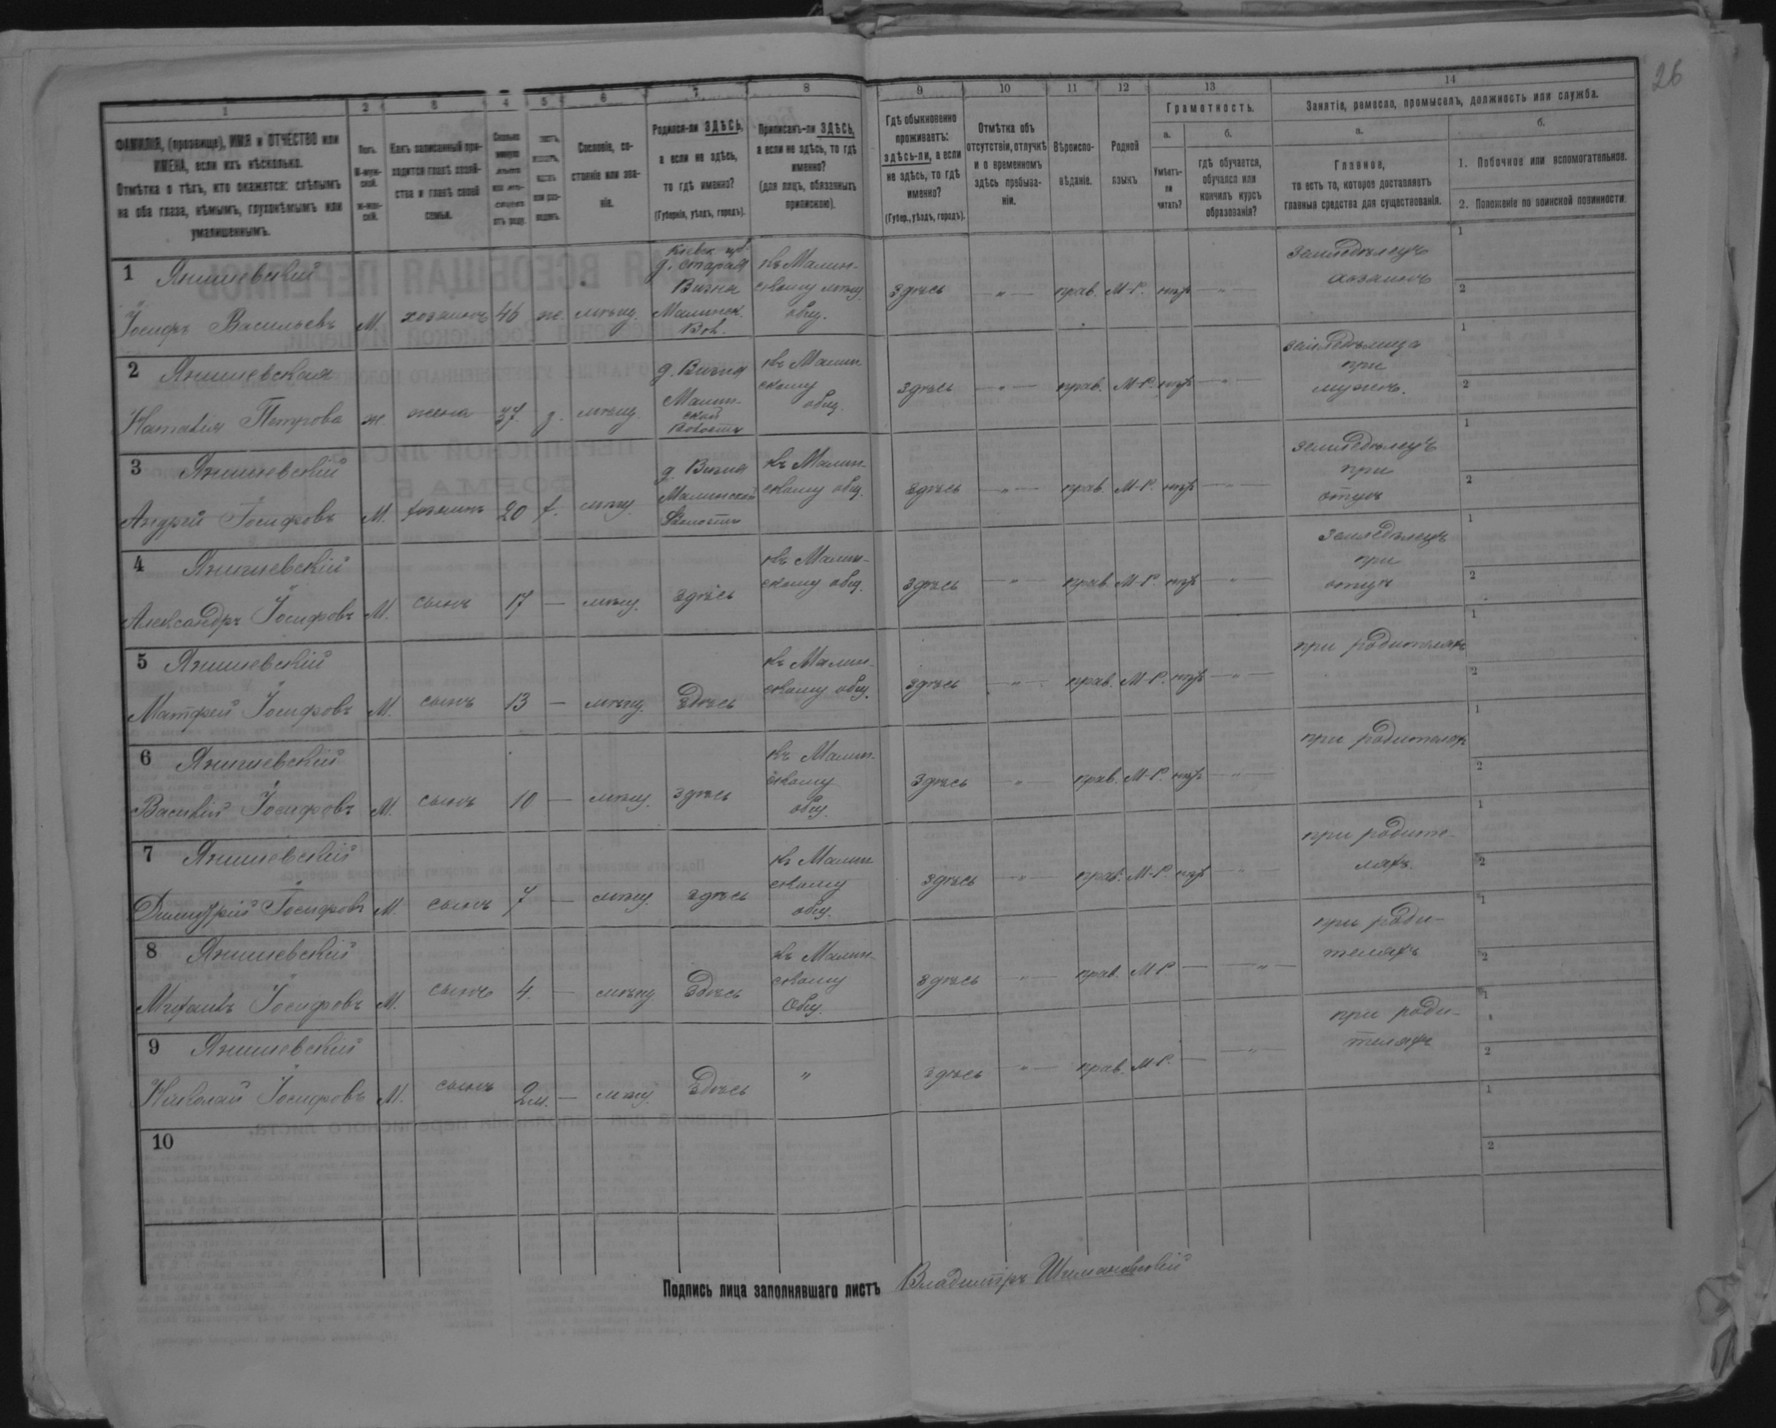 26
1
2
3
4
5
6
7
8
9
10
11
12
13
14
ФАМИЛІЯ, (прозвище), ИМЯ и ОТЧЕСТВО или
ИМЕНА, если ихъ нѣсколько.
Отмѣтка о тѣхъ, кто окажется: слѣпымъ
на оба глаза, нѣмымъ, глухонѣмымъ или
умалишеннымъ.
Полъ.
М-муж-
ской.
ж-жен-
скій.
Какъ записанный при-
ходится главѣ хозяй-
ства и главѣ своей
семьи.
Сословіе, со-
стояніе или зва-
ніе.
Родился-ли ЗДѢСЬ,
а если не здѣсь,
то гдѣ именно?
(Губернія, уѣздъ, городъ).
Приписанъ-ли ЗДѢСЬ,
а если не здѣсь, то гдѣ
именно?
(для лицъ, обязанныхъ
припискою).
Гдѣ обыкновенно
проживаетъ:
здѣсь-ли, а если
не здѣсь, то гдѣ
именно?
(Губер., уѣздъ, городъ).
Отмѣтка объ
отсутствіи, отлучкѣ
и о временномъ
здѣсь пребыва-
ніи.
Вѣроиспо-
вѣданіе.
Родной
языкъ
Грамотность.
а.
Умѣетъ-
ли
читать?
б.
гдѣ обучается,
обучался или
кончилъ курсъ
образованія?
Занятіе, ремесло, промыселъ, должность или служба.
а.
Главное,
то есть то, которое доставляетъ
главныя средства для существованія.
б.
1. Побочное или вспомогательное.
2. Положеніе по воинской повинности.
1 Янишевскій
Іосифъ Васильевъ М. хозяинъ 46 ж. мѣщ.
Кіевск. губ.
д. Старая
Вызна
Малинск.
Вол.
къ Малин-
скому мѣщ.
общ.
здѣсь — " — прав. М-Р. нѣтъ — " —
Земледѣлецъ
хозяинъ
1
2
2 Янишевская
Наталія Петрова ж жена 37 з. мѣщ.
д. Визня
Малин-
ской
Волости
къ Малин
скому
общ.
здѣсь — " — прав. М-Р. нѣтъ — " —
земледѣлица
при
мужѣ.
1
2
3 Янишевскій
Андрей Іосифовъ М. 20 мѣщ.
д Визня
Малинской
Волости
къ Малин-
скому общ.
здѣсь — " — прав. М-Р. нѣтъ — " —
земледѣлецъ
при
отцѣ
1
2
4 Янишевскій
Александръ Іосифовъ М. сынъ 17 — мѣщ. здѣсь
къ Малин-
скому общ.
здѣсь — " — прав. М-Р. нѣтъ — " —
Земледѣлецъ
при
отцѣ
1
2
5 Янишевскій
Матфей Іосифовъ М. сынъ 13 — мѣщ. Здѣсь
къ Малин-
скому общ.
здѣсь — " — прав. М-Р. нѣтъ — " —
при родителяхъ
1
2
6 Янишевскій
Василій Іосифовъ М. сынъ 10 — мѣщ. здѣсь
къ Малин-
скому
общ.
здѣсь — " — прав. М-Р. нѣтъ — " —
при родителяхъ
1
2
7 Янишевскій
Димитрій Іосифовъ М. сынъ 7 — мѣщ. здѣсь
къ Малин
скому
общ.
здѣсь — " — прав. М-Р нѣтъ — " —
при родите-
ляхъ.
1
2
8 Янишевскій
Михаилъ Іосифовъ М. сынъ 4. — мѣщ Здѣсь
къ Малин-
скому
Общ.
здѣсь — " — прав. М-Р — — " —
при роди-
теляхъ
1
2
9 Янишевскій
Николай Іосифовъ М. сынъ 2м. — мѣщ. Здѣсь " здѣсь — " — прав. М-Р. — — " —
при роди-
теляхъ
1
2
10
1
2
Подпись лица заполнявшаго листъ Владиміръ Шимановскій